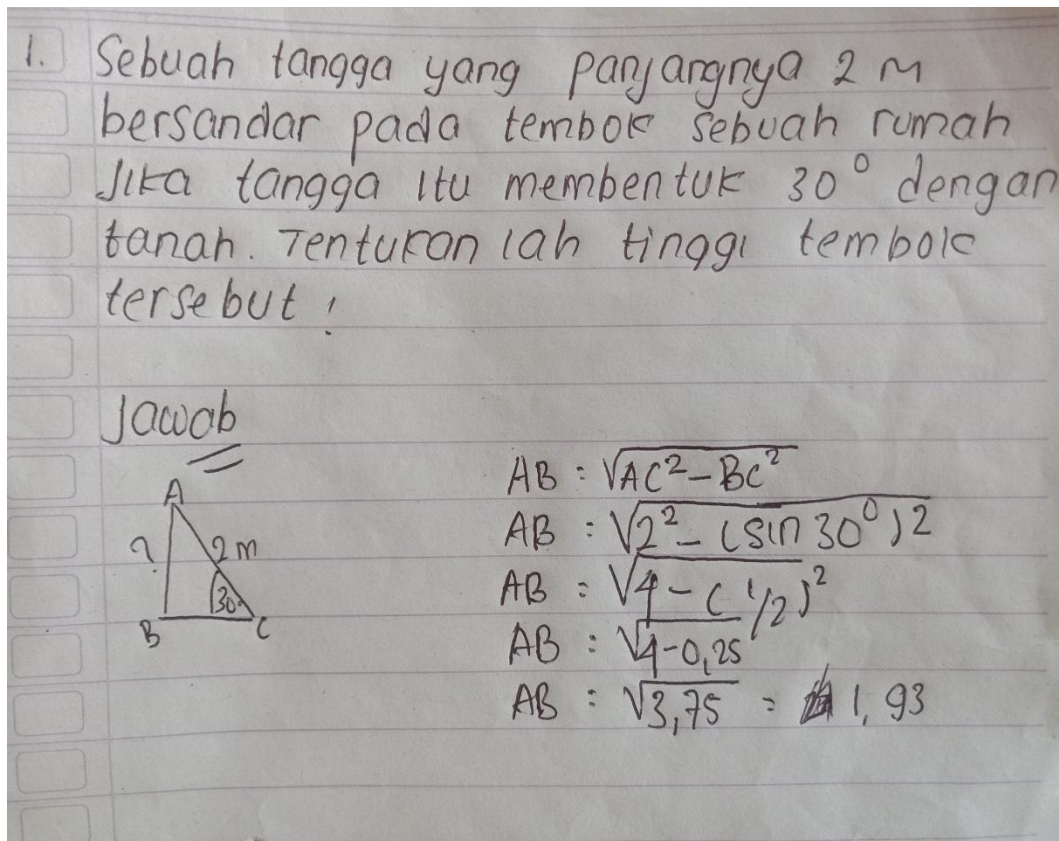 1. Sebuah tangga yang panjangnya 2 M
bersandar pada tembok sebuah rumah
Jika tangga itu membentuk 30° dengan
tanah. Tentukan lah tinggi tembok
tersebut !
Jawab
A
? 2m
30°
B C
AB : √AC² - BC²
AB : √2² - (sin 30°)2
AB : √4 - (1/2)²
AB : √4-0,25
AB : √3,75 = 1,93